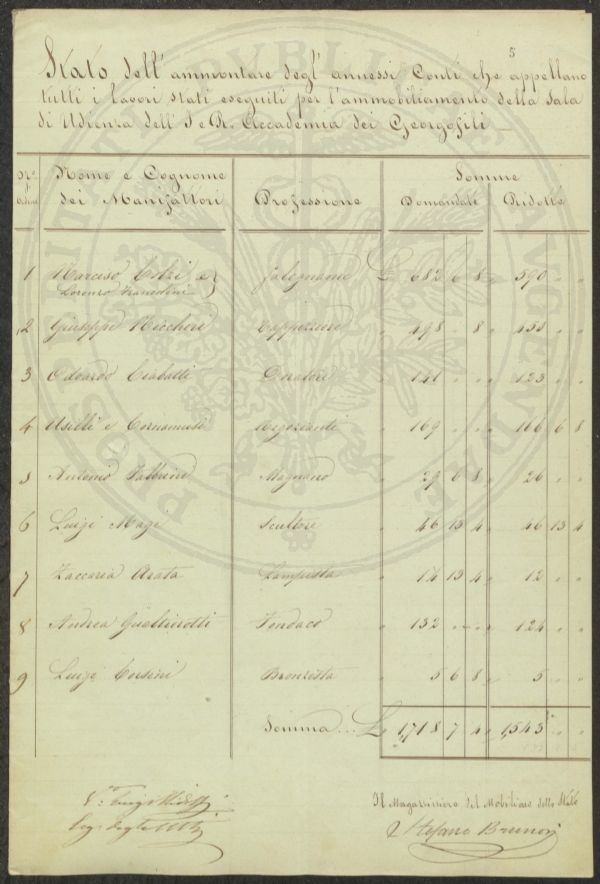 5
Stato dell'ammontare degl'annessi Conti che appellano
tutti i lavori stati eseguiti per l'ammobiliamento della Sala
di Udienza dell'I e R. Accademia dei Georgofili
Nome e Cognome dei Manifattori Professione Somme Domandate Ridotte
1 Narciso e Lorenzo Falegname L 682 6 8 590 " "
2 Giuseppe Tappezziere 498 " 8 450 " "
3 Odoardo Ciabatti Doratore 141 " " 123 " "
4 Uzielli e Negozianti 169 " " 166 6 8
5 Antonio Fabbrini Magnano 29 6 8 26 " "
6 Luigi Magi Scultore 46 13 4 46 13 4
7 Zaccaria Arata Lampista 14 13 4 12 " "
8 Andrea Gualtierotti Fondaco 132 " " 124 " "
9 Luigi Corsini Bronzista 5 6 8 5 " "
Somma ... L 1,718 7 4 1,543 " "
Il Magazziniere del Mobiliare dello Stato
Stefano Brunori